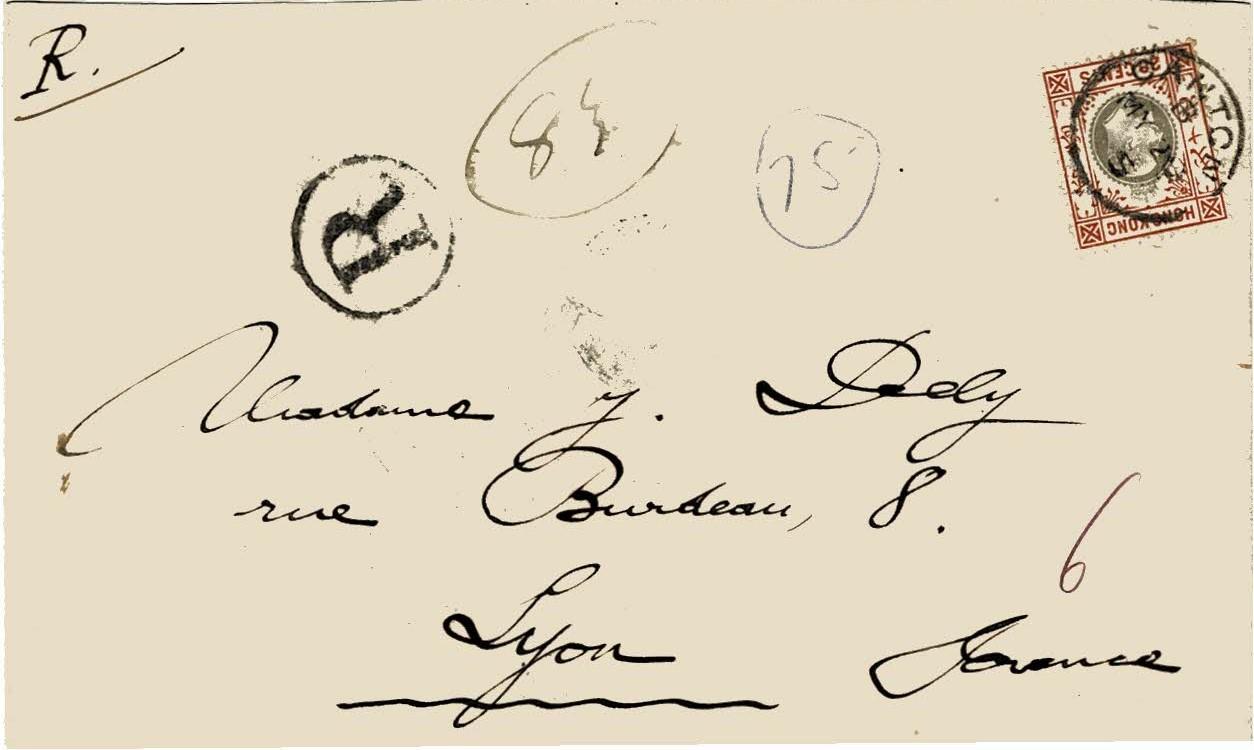 R.
84
75
R
20 CENTS
HONG KONG
CANTON
B
MY 24
Madame J. Dedy
rue Burdeau, 8.
6
Lyon France